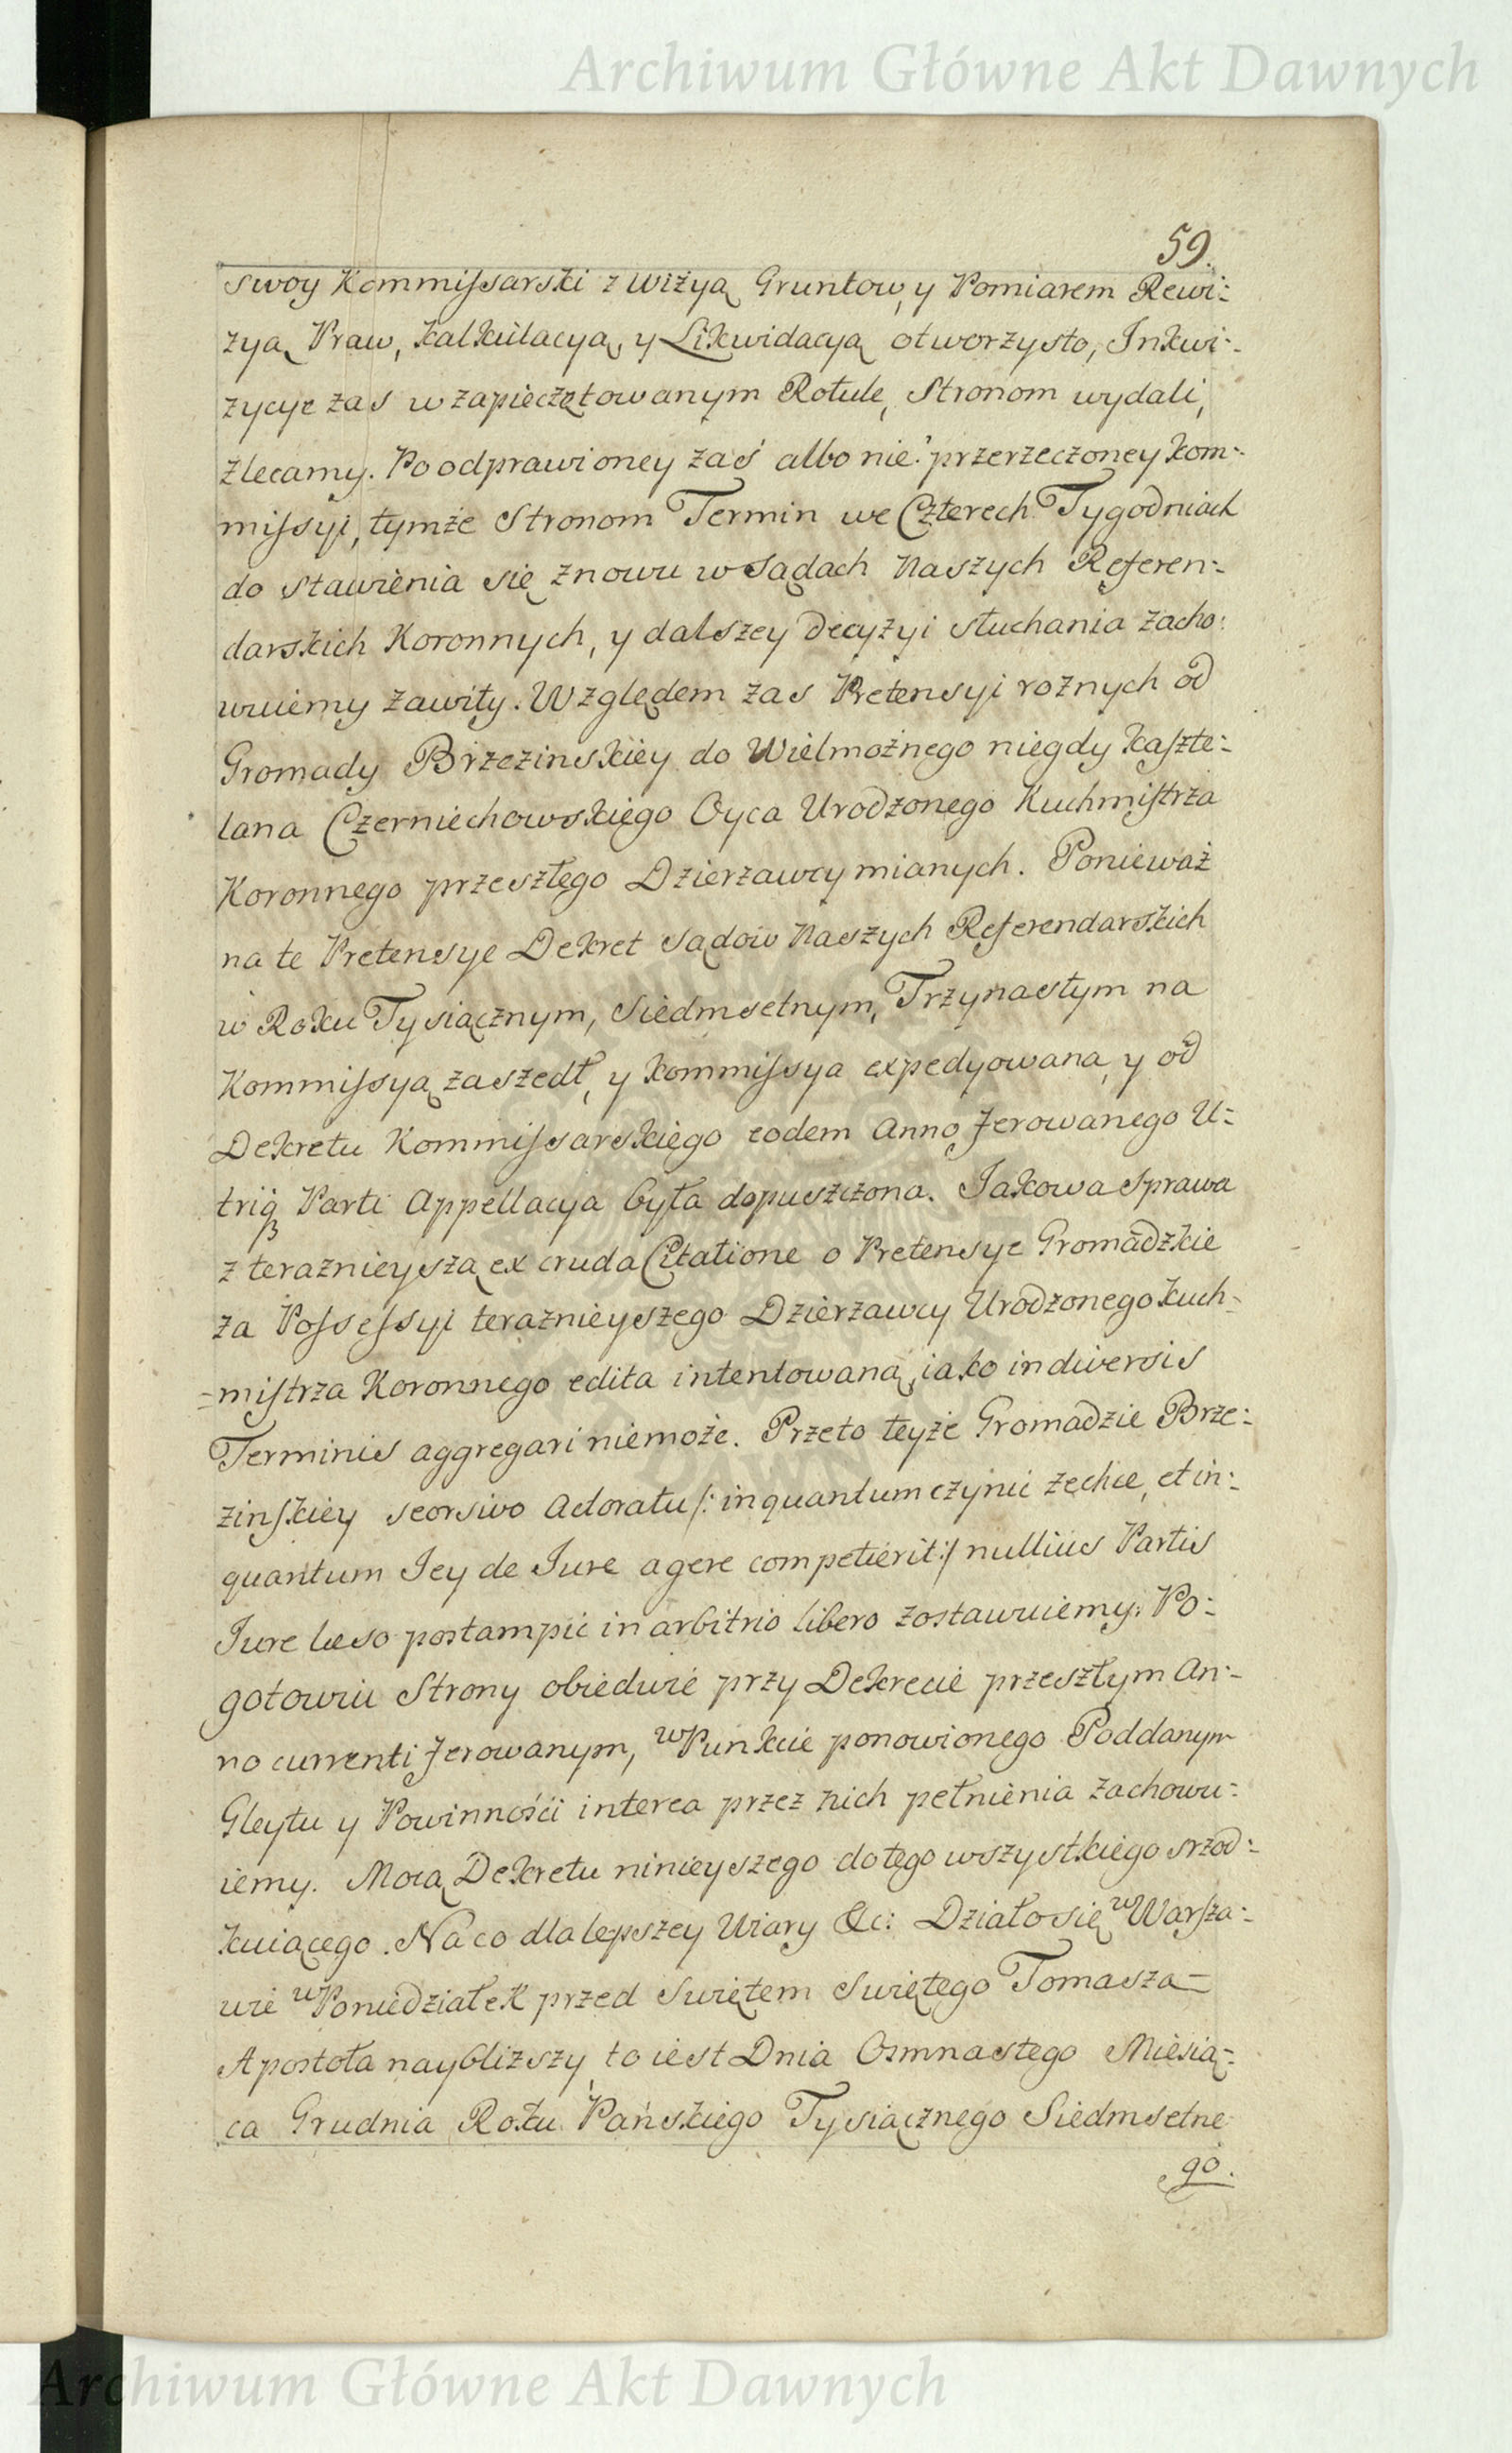 Archiwum Główne Akt Dawnych
59.
swoy Kommissarski z wizyą Gruntow, y Pomiarem Rewi:
zyą Praw, kalkulacyą, y Likwidacyą otworzysto, Inkwi:
zycye zas w zapieczętowanym Rotule, Stronom wydali,
zlecamy. Po odprawioney zaś albo nie: przerzeczoney kom:
missyi, tymże Stronom Termin we Czterech Tygodniach
do stawienia się znowu w Sądach Naszych Referen:
darskich Koronnych, y dalszey Decyzyi słuchania zacho:
wuiemy zawity. Względem zas Pretensyi roznych od
Gromady Brzezinskiey do Wielmożnego niegdy Kaszte:
lana Czerniechowskiego Oyca Urodzonego Kuchmistrza
Koronnego przeszłego Dzierzawcy mianych. Ponieważ
na te Pretensye Dekret Sądow Naszych Referendarskich
w Roku Tysiącznym, Siedmsetnym, Trzynastym na
Kommissyą zaszedł, y kommissya expedyowana, y od
Dekretu Kommissarskiego eodem Anno ferowanego U:
triq Parti Appellacya była dopuszczona. Jakowa sprawa
z teraznieyszą ex cruda Citatione o Pretensye Gromadzkie
za Possessyi teraznieyszego Dzierzawcy Urodzonego Kuch-
-mistrza Koronnego edita intentowaną, iako in diversis
Terminis aggregari niemoże. Przeto teyże Gromadzie Brze:
zinskiey seorsivo Actoratu /: inquantum czynic zechce, et in:
quantum Jey de Jure agere competierit :/ nullius Partis
Jure læso postąmpic in arbitrio libero zostawuiemy. Po:
gotowiu Strony obiedwie przy Dekrecie przeszłym An:
no currenti ferowanym, w Punkcie ponowionego Poddanym
Gleytu y Powinności interea przez nich pełnienia zachowu:
iemy. Mocą Dekretu ninieyszego do tego wszystkiego srzod:
kuiącego. Na co dla lepszey Wiary &c: Działo się w Warsza:
wie w Poniedziałek przed Swiętem Swiętego Tomasza
Apostoła naybliższy, to iest Dnia Osmnastego Miesią:
ca Grudnia Roku Pańskiego Tysiącznego Siedmsetne
go.
Archiwum Główne Akt Dawnych